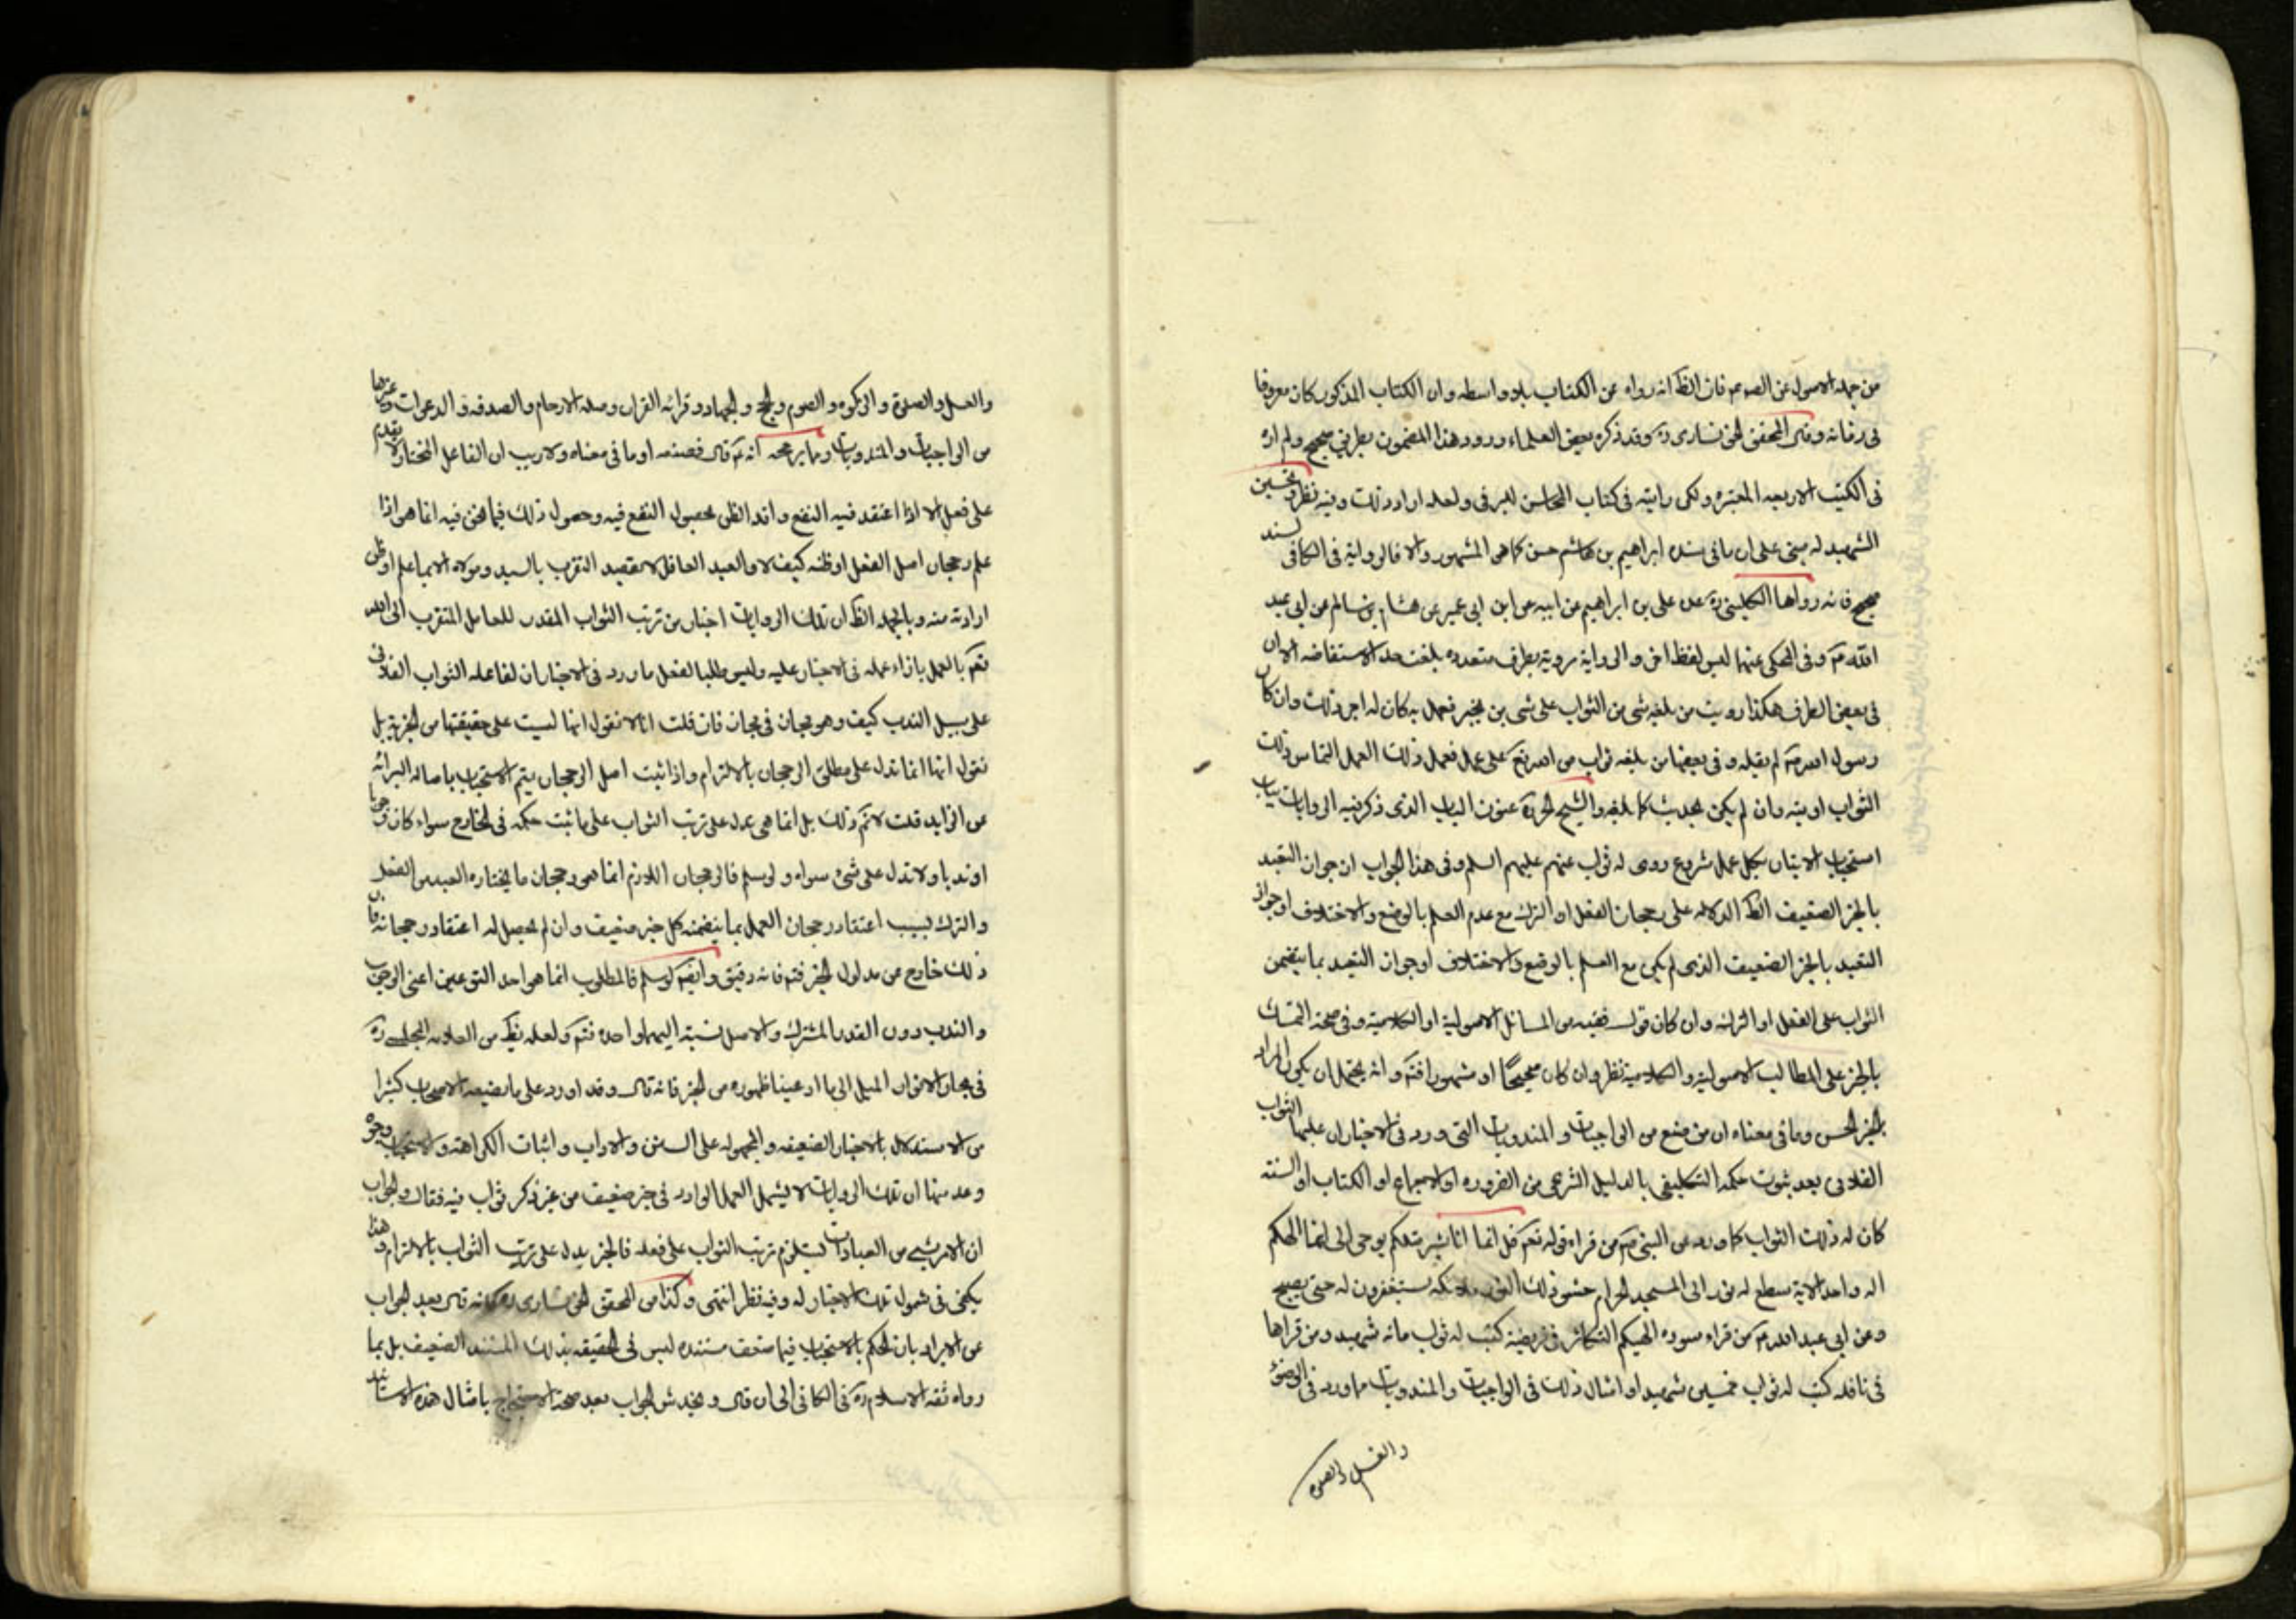 من جملة الاصول عن الصوم فان الظ انه رواه عن الكتاب بلا واسطه وان الكتاب المذكور كان معروفا
فى زمانه وقال المحقق الخونسارى ره وقد ذكره بعض العلماء ورود هذا المضمون بطريق صحيح ولم اره
فى الكتب الاربعه المعتبره ولكن رايته فى كتاب المحاسن للبرقى ولعله اراد ذلك وفيه نظر وتحسين
الشهيد له مبنى على ان مافى سنده ابراهيم بن هاشم حسن كما هو المشهور والا فالرواية فى الكافى لسند
صحيح فانه رواها الكلينى ره عن على بن ابراهيم عن ابيه عن ابن ابى عمير عن هشام بن سالم عن ابى عبد
الله ع وفى المحكى عنهما ليس لفظ اخر والرواية مروية بطرق متعدده بلغت حد الاستفاضه الا ان
فى بعض الطرف هكذا رويت من بلغه شئ من الثواب على شئ من الخير فعمل به كان له اجر ذلك وان كان
رسول الله ص لم يقله وفى بعضها من بلغه ثواب من الله تع على عمل فعمل ذلك العمل التماس ذلك
الثواب اوتيه وان لم يكن الحديث كما بلغه والشيخ الحر ره عنون الباب الذى ذكر فيه الروايات بباب
استحباب الاتيان بكل عمل مشروع روى له ثواب عنهم عليهم السلم وفى هذا الجواب ان جواز التعبد
بالخبر الضعيف الظ الدلاله على رجحان الفعل او الترك مع عدم العلم بالوضع والاختلاف او جواز
التعبد بالخبر الضعيف الذى لم يكن مع العلم بالوضع والاختلاف او جواز التعبد بما يتضمن
الثواب على الفعل او الترك وان كان قول فقيه من المسائل الاصولية او الكلامية وفى صحة التمسك
بالخبر على المطالب الاصولية والكلامية نظر وان كان صحيحًا او مشهورا فتم وانه يحتمل ان يكون المراد
بالخبر الحسن ومافى معناه ان من صنع من الواجبات والمندوبات التى ورد فى الاخبار ان عليها الثواب
الفلانى بعد ثبوت حكمه التكليفى بالدليل الشرعى من الضروره او الاجماع او الكتاب او السنة
كان له ذلك الثواب كما ورد عن النبى ص من قراء قوله تعم قل انما انا بشر مثلكم يوحى الى انما الهكم
اله واحد الاية سطع له نور الى المسجد الحرام حشو ذلك النور ملائكه يستغفرون له حتى يصبح
وعن ابى عبد الله ع من قراء سوره الهيكم التكاثر فى فريضة كتب له ثواب مائه شهيد ومن قراها
فى نافله كتب له ثواب خمسين شهيد او امثال ذلك فى الواجبات والمندوبات ماورد فى الوضوء
والغسل والصلوة
والغسل والصلوة والزكوه والصوم والحج والجهاد وقرائه القران وصلة الارحام والصدقه والدعوات وغيرها
من الواجبات والمندوبات وما يرجحه انه ع قال فصنعه او مافى معناه ولاريب ان الفاعل المختار لا يقدم
على فعل الا اذا اعتقد فيه النفع واقد الظن بحصول النفع فيه وحصول ذلك فيما نحن فيه انما هو اذا
علم رجحان اصل الفعل او ظنه كيف لا والعبد العاقل لا يقصد التقرب بالسيد ومولاه الا بما علم او ظن
ارادته منه وبالجمله الظ ان تلك الروايات اخبار من ترتب الثواب المقدر للعامل المتقرب الى الله
تعم بالعمل بازاء عمله فى الاخبار عليه وليس طلبا لفعل ماورد فى الاخبار ان لفاعله الثواب الفلانى
على سبيل الندب كيف وهو مجاز فى مجاز فان قلت انا لا نقول انها ليست على حقيقتها من الخبرية بل
نقول انها انما تدل على مطلق الرجحان بالالتزام واذا ثبت اصل الرجحان يتم الاستحباب باصالة البرائة
عن الزايد قلت لا نم ذلك بل انما هى تدل على ترتب الثواب على ما ثبت حكمه فى الخارج سواء كان وجوبا
او ندبا ولا تدل على شئ سواه ولو سلم فالرجحان اللازم انما هو رجحان ما يختاره العبد من الفعل
والترك بسبب اعتقاد رجحان العمل بما يتضمنه كل خبر ضعيف وان لم يحصل له اعتقاد رجحانه فان
ذلك خارج عن مدلول الخبر فتم فانه دقيق وايضم لو سلم فالمطلوب انما هو احد النوعين اعنى الوجوب
والندب دون القدر المشترك والاصل نسبة اليهما واحده فتم ولعله يظ من العلامه المجلسى ره
فى بحار الانوار الميل الى ما ادعينا ظهوره من الخبر فانه قال وقد اورد على ما يضيعه الاصحاب كثيرا
من الاستدلال بالاخبار الضعيفه والمجهوله على السنن والاداب واثبات الكراهة والاستحباب وجوه
وعد منها ان تلك الروايات لا يشمل العمل الوارد فى خبر ضعيف من غير ذكر ثواب فيه فقال والجواب
ان الامر بشئ من العبادات يستلزم ترتب الثواب على فعله فالخبر يدل على ترتب الثواب بالالتزام وهذا
يكفى فى شمول تلك الاخبار له وفيه نظر انتهى وكذا من المحقق الخونسارى ره فانه قال بعد الجواب
عن الايراد بان الحكم بالاستحباب فيما ضعف مستنده ليس فى الحقيقه بذلك المستند الضعيف بل بما
رواه ثقه الاسلام ره فى الكافى الى ان قال ويخدش الجواب بعد صحة الاحتجاج بامثال هذه الاسانيد